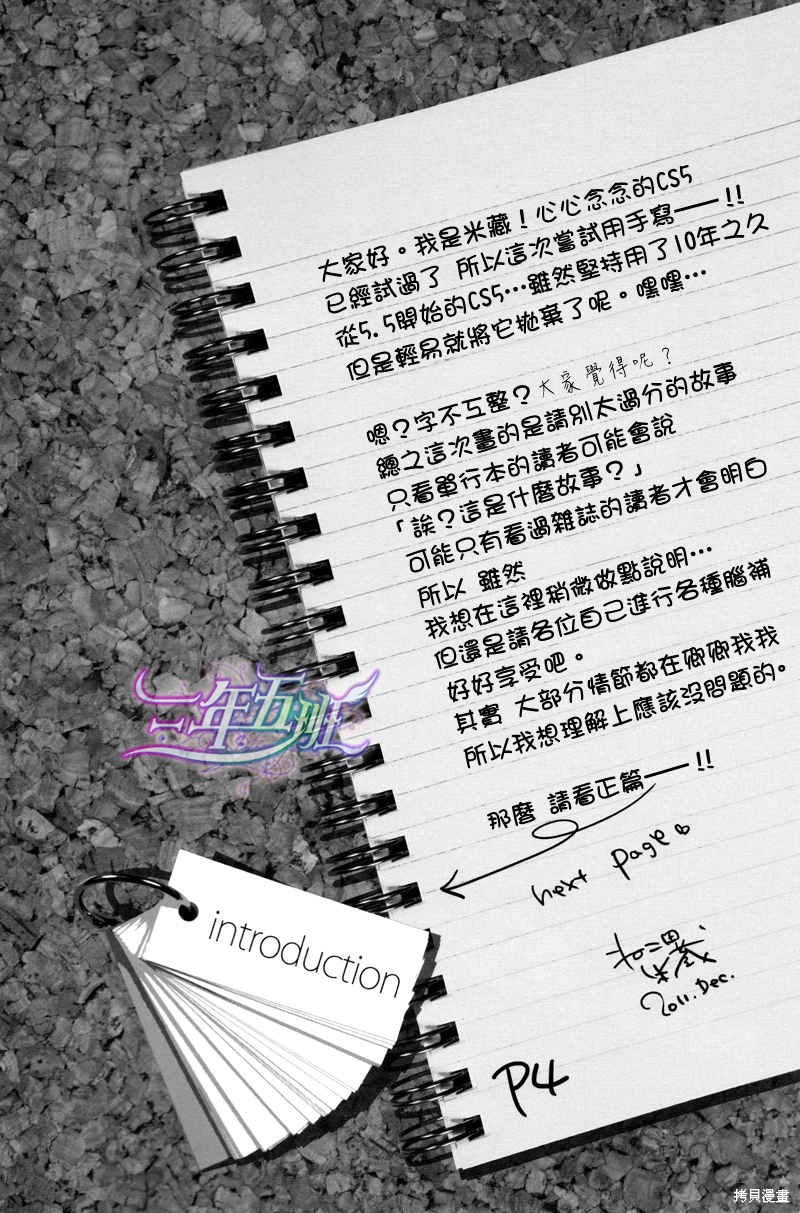 大家好。我是米藏！心心念念的CS5
已經試過了 所以這次嘗試用手寫——!!
從5.5開始的CS5…雖然堅持用了10年之久
但是輕易就將它拋棄了呢。嘿嘿…
嗯？字不工整？大家覺得呢？
總之這次畫的是請別太過分的故事
只看單行本的讀者可能會說
「誒？這是什麼故事？」
可能只有看過雜誌的讀者才會明白
所以 雖然
我想在這裡稍微做點說明…
但還是請各位自己進行各種腦補
好好享受吧。
其實 大部分情節都在卿卿我我
所以我想理解上應該沒問題的。
那麼 請看正篇——!!
next page
2011.Dec.
P4
introduction
三年五班
拷貝漫畫